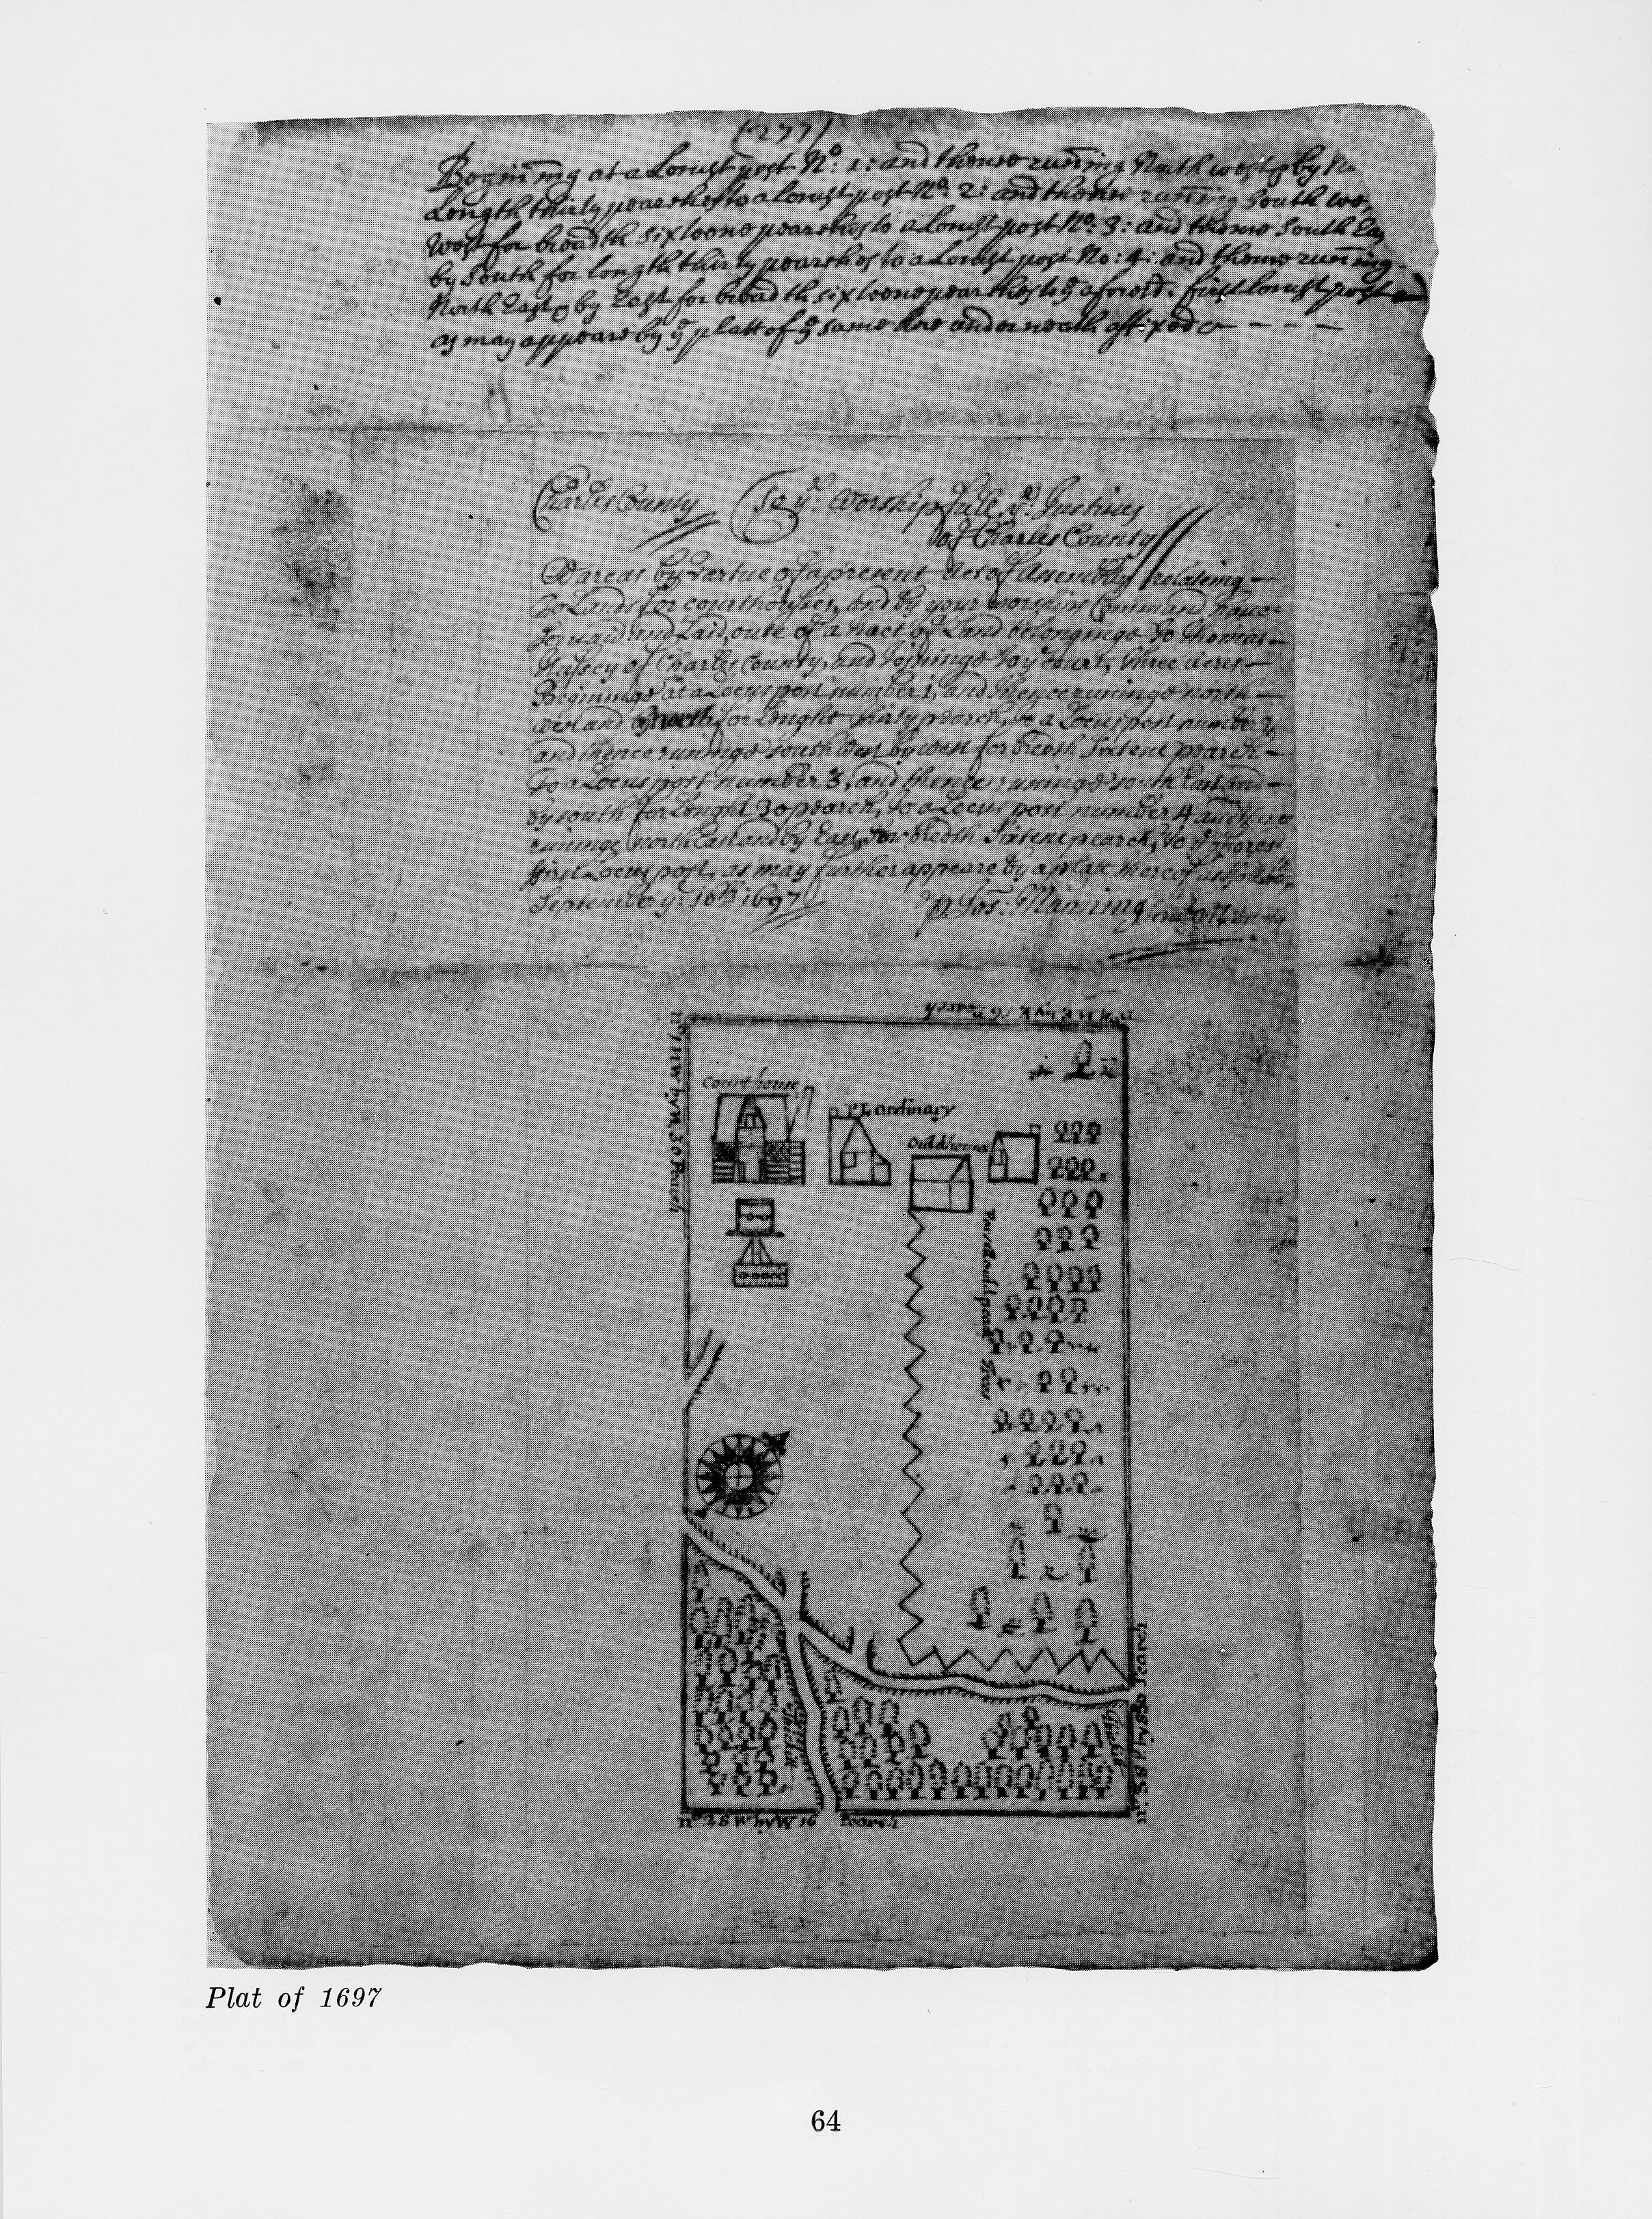 (277)
Begining at a Locust post No: 1: and thence runing North west & by No
Length thirty pearches to a locust post No: 2: and thence runing South we
West for breadth sixteene pearches to a locust post No: 3: and thence South Eas
by South for length thirty pearches to a Locust post No: 4: and thence runing
North East & by East for breadth sixteene pearches to ye aforesd: first locust post
as may appeare by ye platt of ye same here underneath affixed
Charles County To ye: Worshipfule ye: Justices
of Charles County
Wareas by vartue of a present Act of Assembly relateing
To Lands for courthouses, and by your worships Command have
and Laid oute of a tract of Land belonginge to Thomas
Hussey of Charles County, and Joyninge to ye court, three acres
Beginninge at a Locus post number 1, and thence runinge north
west and by north for Lenght thirty pearch, to a Locus post number 2,
and thence runinge south west by west for bredth Sixtene pearch
To a Locus post number 3, and thence runinge south East and
by south for Lenght 30 pearch, to a Locus post number 4 and thence
runinge north East and by East, for bredth Sixtene pearch, to ye afforesd
first Locus post, as may further appeare by a platt thereof
September ye: 16th 1697 p Jos: Manning
no 4 N E by E 16 Pearch
no 1 N W by N 30 Pearch
Court house
Ordinary
Ould house
pear Trees
no 2 S W by W 16 Pearch
no: 3 S E by S 30 Pearch
Plat of 1697
64